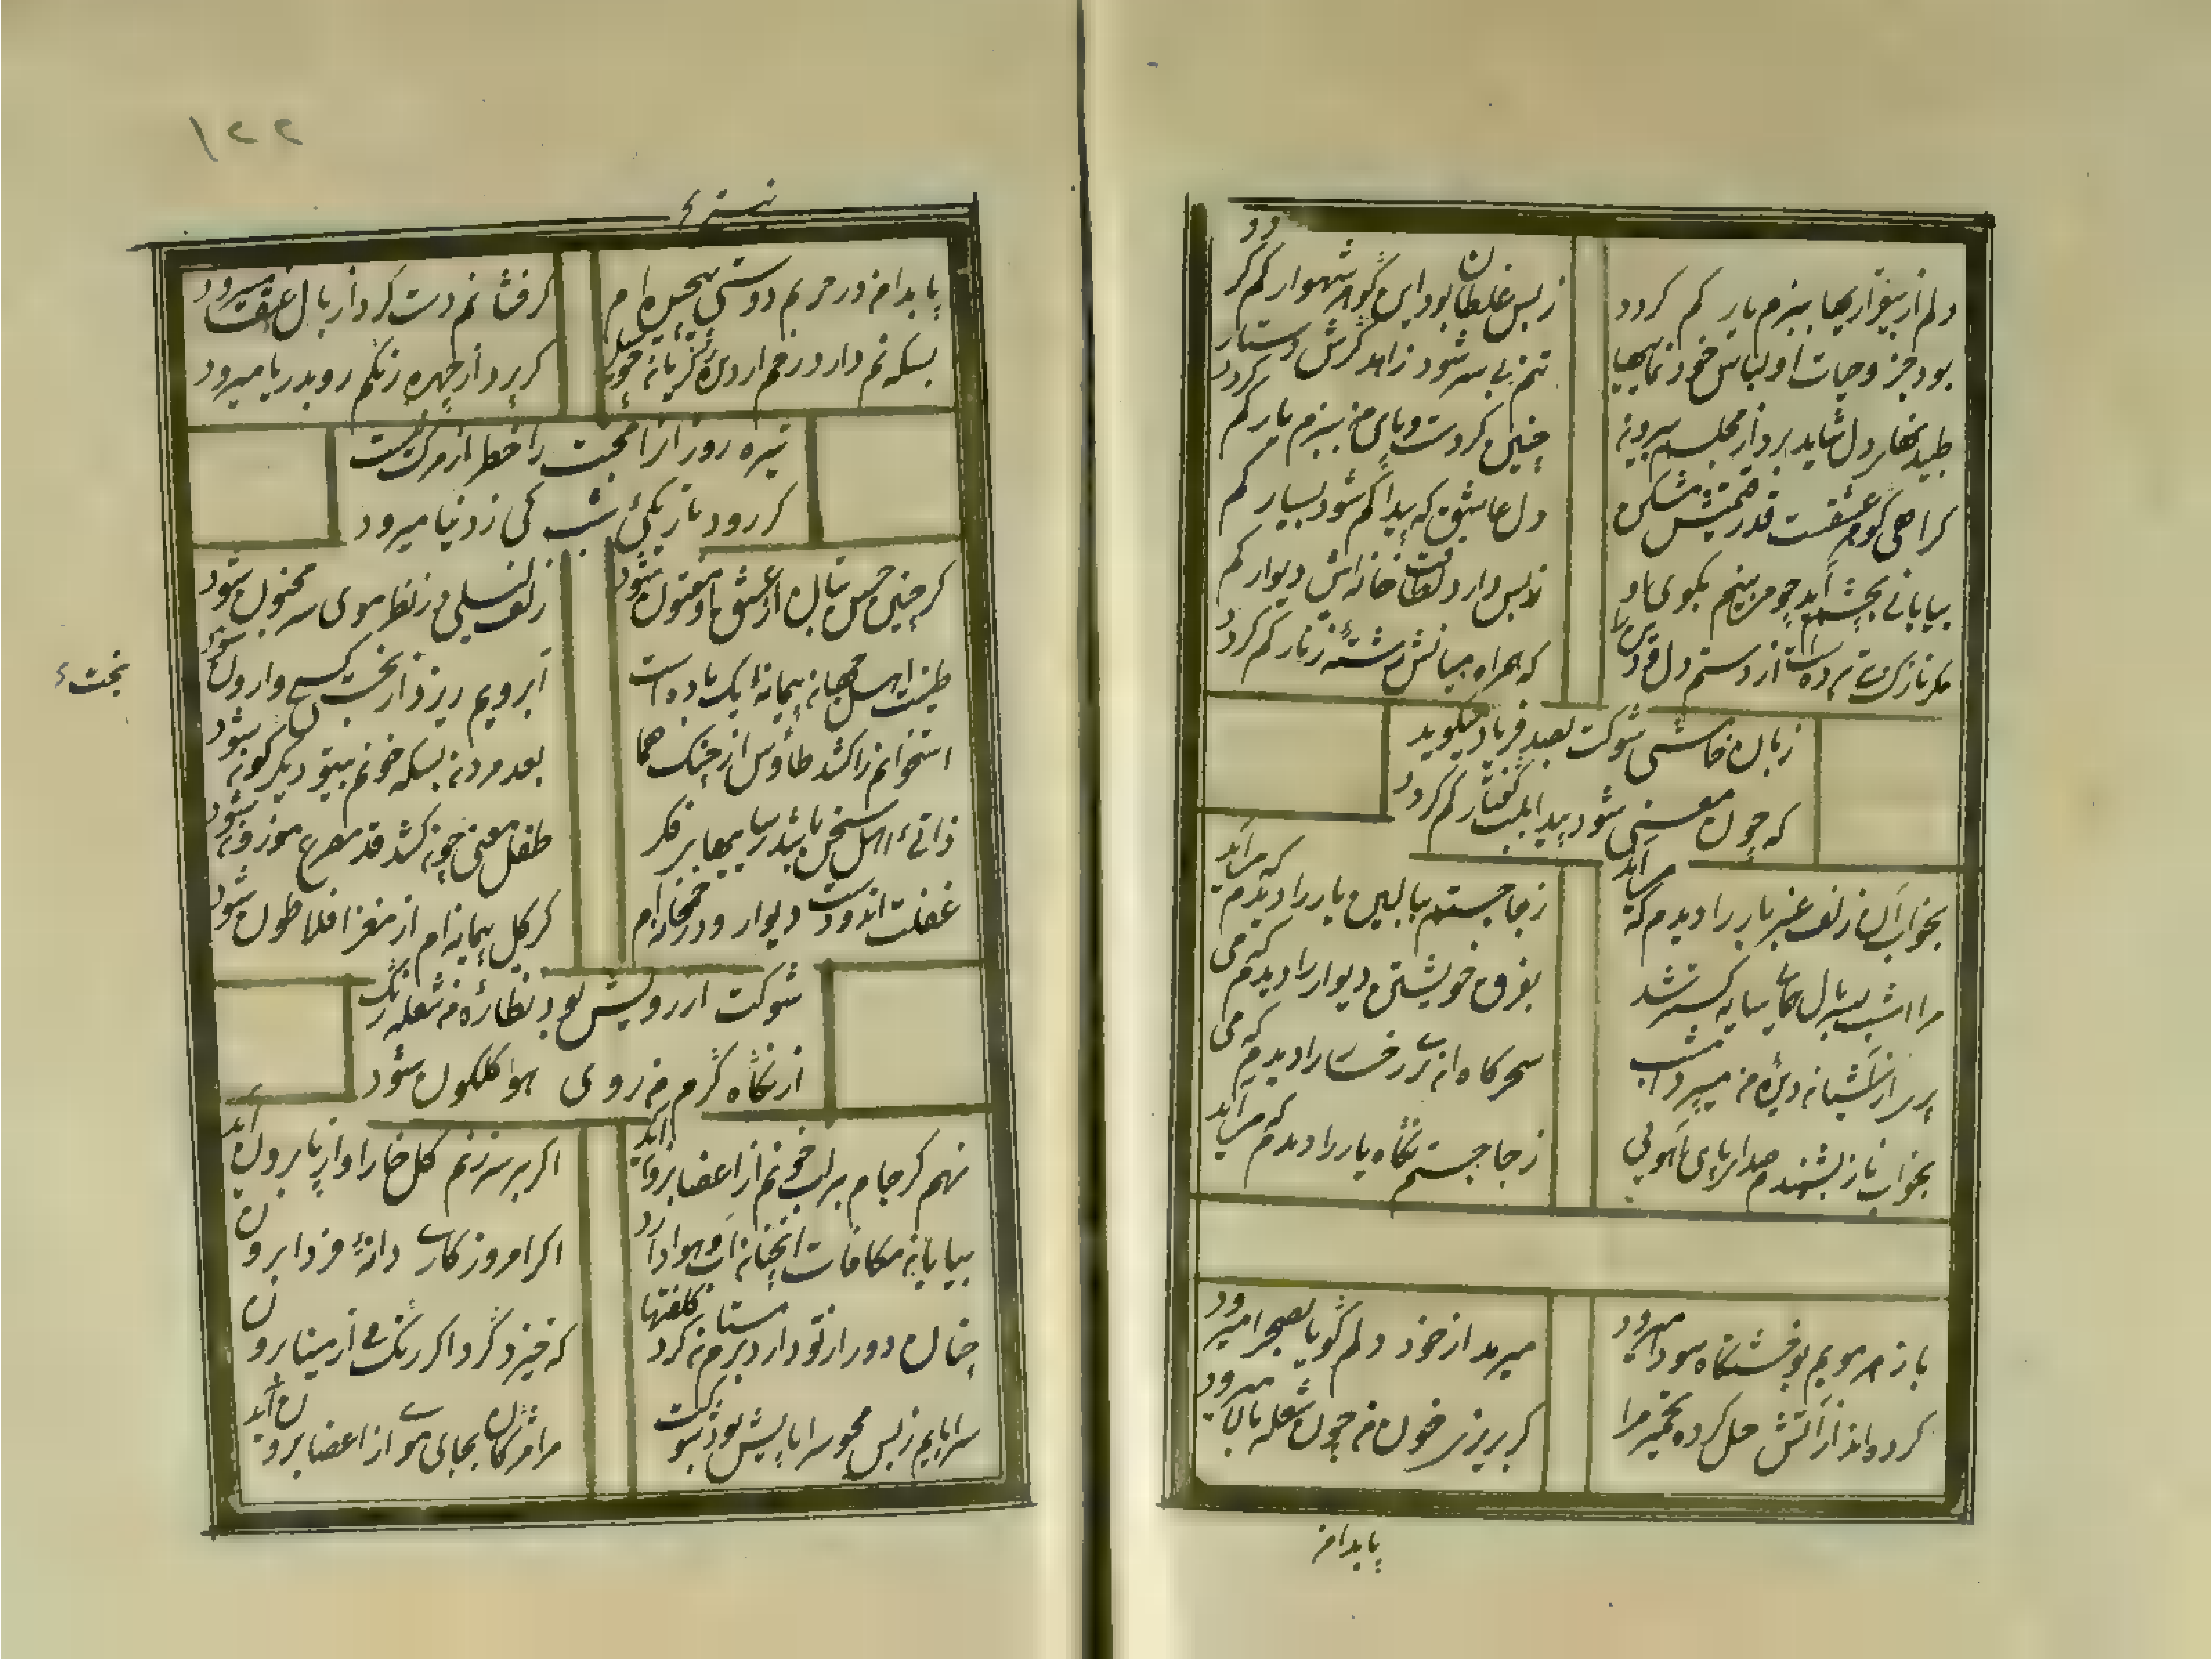 دلم از بیقراریها ببزم یار کم کردد
ز بس غلطان بود این گوهر شهوار کم کردد
بود جز و حیات او لباس خود نماییها
تنم بی سر شود زاهد کرش دستار کم کردد
طپیدنهای دل شاید برد از مجلسم بیرون
چنین کر دست و پای من ببزم یار کم کردد
کرامی کوهر عشقست قدر قیمتش مشکن
دل عاشق که پیدا کم شود بسیار کم
بیابانی بچشم آید چو من بینم بکوی او
ز بس دارد لطافت خانه اش دیوار کم
مکر نازک برده است از دستم دل و دین را
که همراه میانش رشتهٔ زنار کم کردد
زبان خامشی شوکت بصد فریاد میکوید
که چون معنی شود پیدا بلب گفتار کم کردد
بخواب آن زلف عنبر بار را دیدم که می آید
ز جا جستم ببالین یار را دیدم که می آید
مرا امشب سر بال همای سایه کستر شد
بفرق خویشتن دیوار را دیدم که می
پری از آشیان دیدهٔ من میپرد امشب
سحر کاهان پی رخسار را دیدم که می
بخواب ناز بشنیدم صدای پای آهویی
ز جا جستم نگاه یار را دیدم که می آید
باز هر مویم بوحشتگاه سودا میرود
میرمد از خود دلم گویا بصحرا میرود
کرده اند از آتش حل کرده تخمیر مرا
کر بریزی خون من چون شعله بالا میرود
پابدامن
۱۲۲
نیستی
پابدامن در حریم دوستی پیچیده ام
کر فشانم دست کرد از بال عنقا میرود
بسکه نم دارد رخم از دیدهٔ گریان خویش
کر پرد از چهره رنگم رو بدریا میرود
تیره روزان محبت را خطر از مرک نیست
کر رود تاریکیٔ شب کی ز دنیا میرود
کر چنین حسن بتان از عشق ما مفتون شود
زلف لیلی در نظرها موی سر مجنون شود
طینت اهل جهان پیمانهٔ یک باده است
آبرویم ریزد از بخت کسی وارون شود
استخوانم را کشد طاوس از چنک هما
بعد مردن بسکه خونم بیتو دیگرگون شود
ذاتی اهل سخن باشد رساییهای فکر
طفل معنی چون کشد قد مصرع موزون شود
غفلت اندودست دیوار و در میخانه ام
کر کل پیمانه ام از مغز افلاطون شود
بخت
شوکت از رویش بود نظارهٔ من شعله رنک
از نگاه گرم من روی هوا گلگون شود
نهم کر جام بر لب خونم از اعضا برون آید
اکر بر سر زنم کل خارا و از پا برون آید
بیابان مکافات آنچنان آب و هوا دارد
اکر امروز کاری دانهٔ فردا برون
چنان دور از تو دارد بزم مستان کرد کلفتها
که خیزد گرد اکر رنگ می از مینا برون
سراپایم ز بس محو سراپایش بود شوکت
مرا مژکان بجای مو از اعضا برون آید